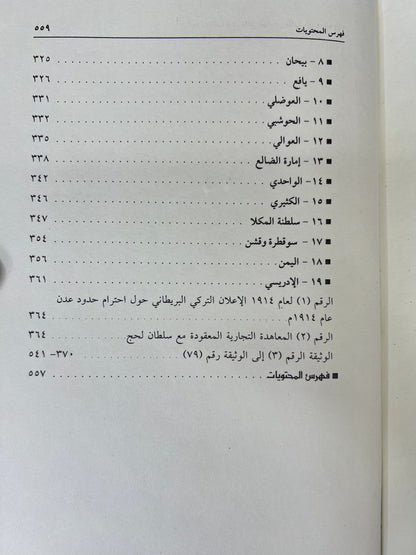 فهرس المحتويات ٥٥٩
■ ٨ - بيحان ........ ٣٢٥
■ ٩ - يافع ........ ٣٢٦
■ ١٠ - العوضلي ........ ٣٣١
■ ١١ - الحوشبي ........ ٣٣٢
■ ١٢ - العوالي ........ ٣٣٥
■ ١٣ - إمارة الضالع ........ ٣٣٨
■ ١٤ - الواحدي ........ ٣٤٢
■ ١٥ - الكثيري ........ ٣٤٦
■ ١٦ - سلطنة المكلا ........ ٣٤٧
■ ١٧ - سوقطرة وقشن ........ ٣٥٤
■ ١٨ - اليمن ........ ٣٥٦
■ ١٩ - الإدريسي ........ ٣٦١
الرقم (١) لعام ١٩١٤ الإعلان التركي البريطاني حول احترام حدود عدن
عام ١٩١٤م ........ ٣٦٤
الرقم (٢) المعاهدة التجارية المعقودة مع سلطان لحج ٣٦٤
الوثيقة الرقم (٣) إلى الوثيقة رقم (٧٩) ........ ٣٧٠- ٥٤١
■ فهرس المحتويات ........ ٥٥٧